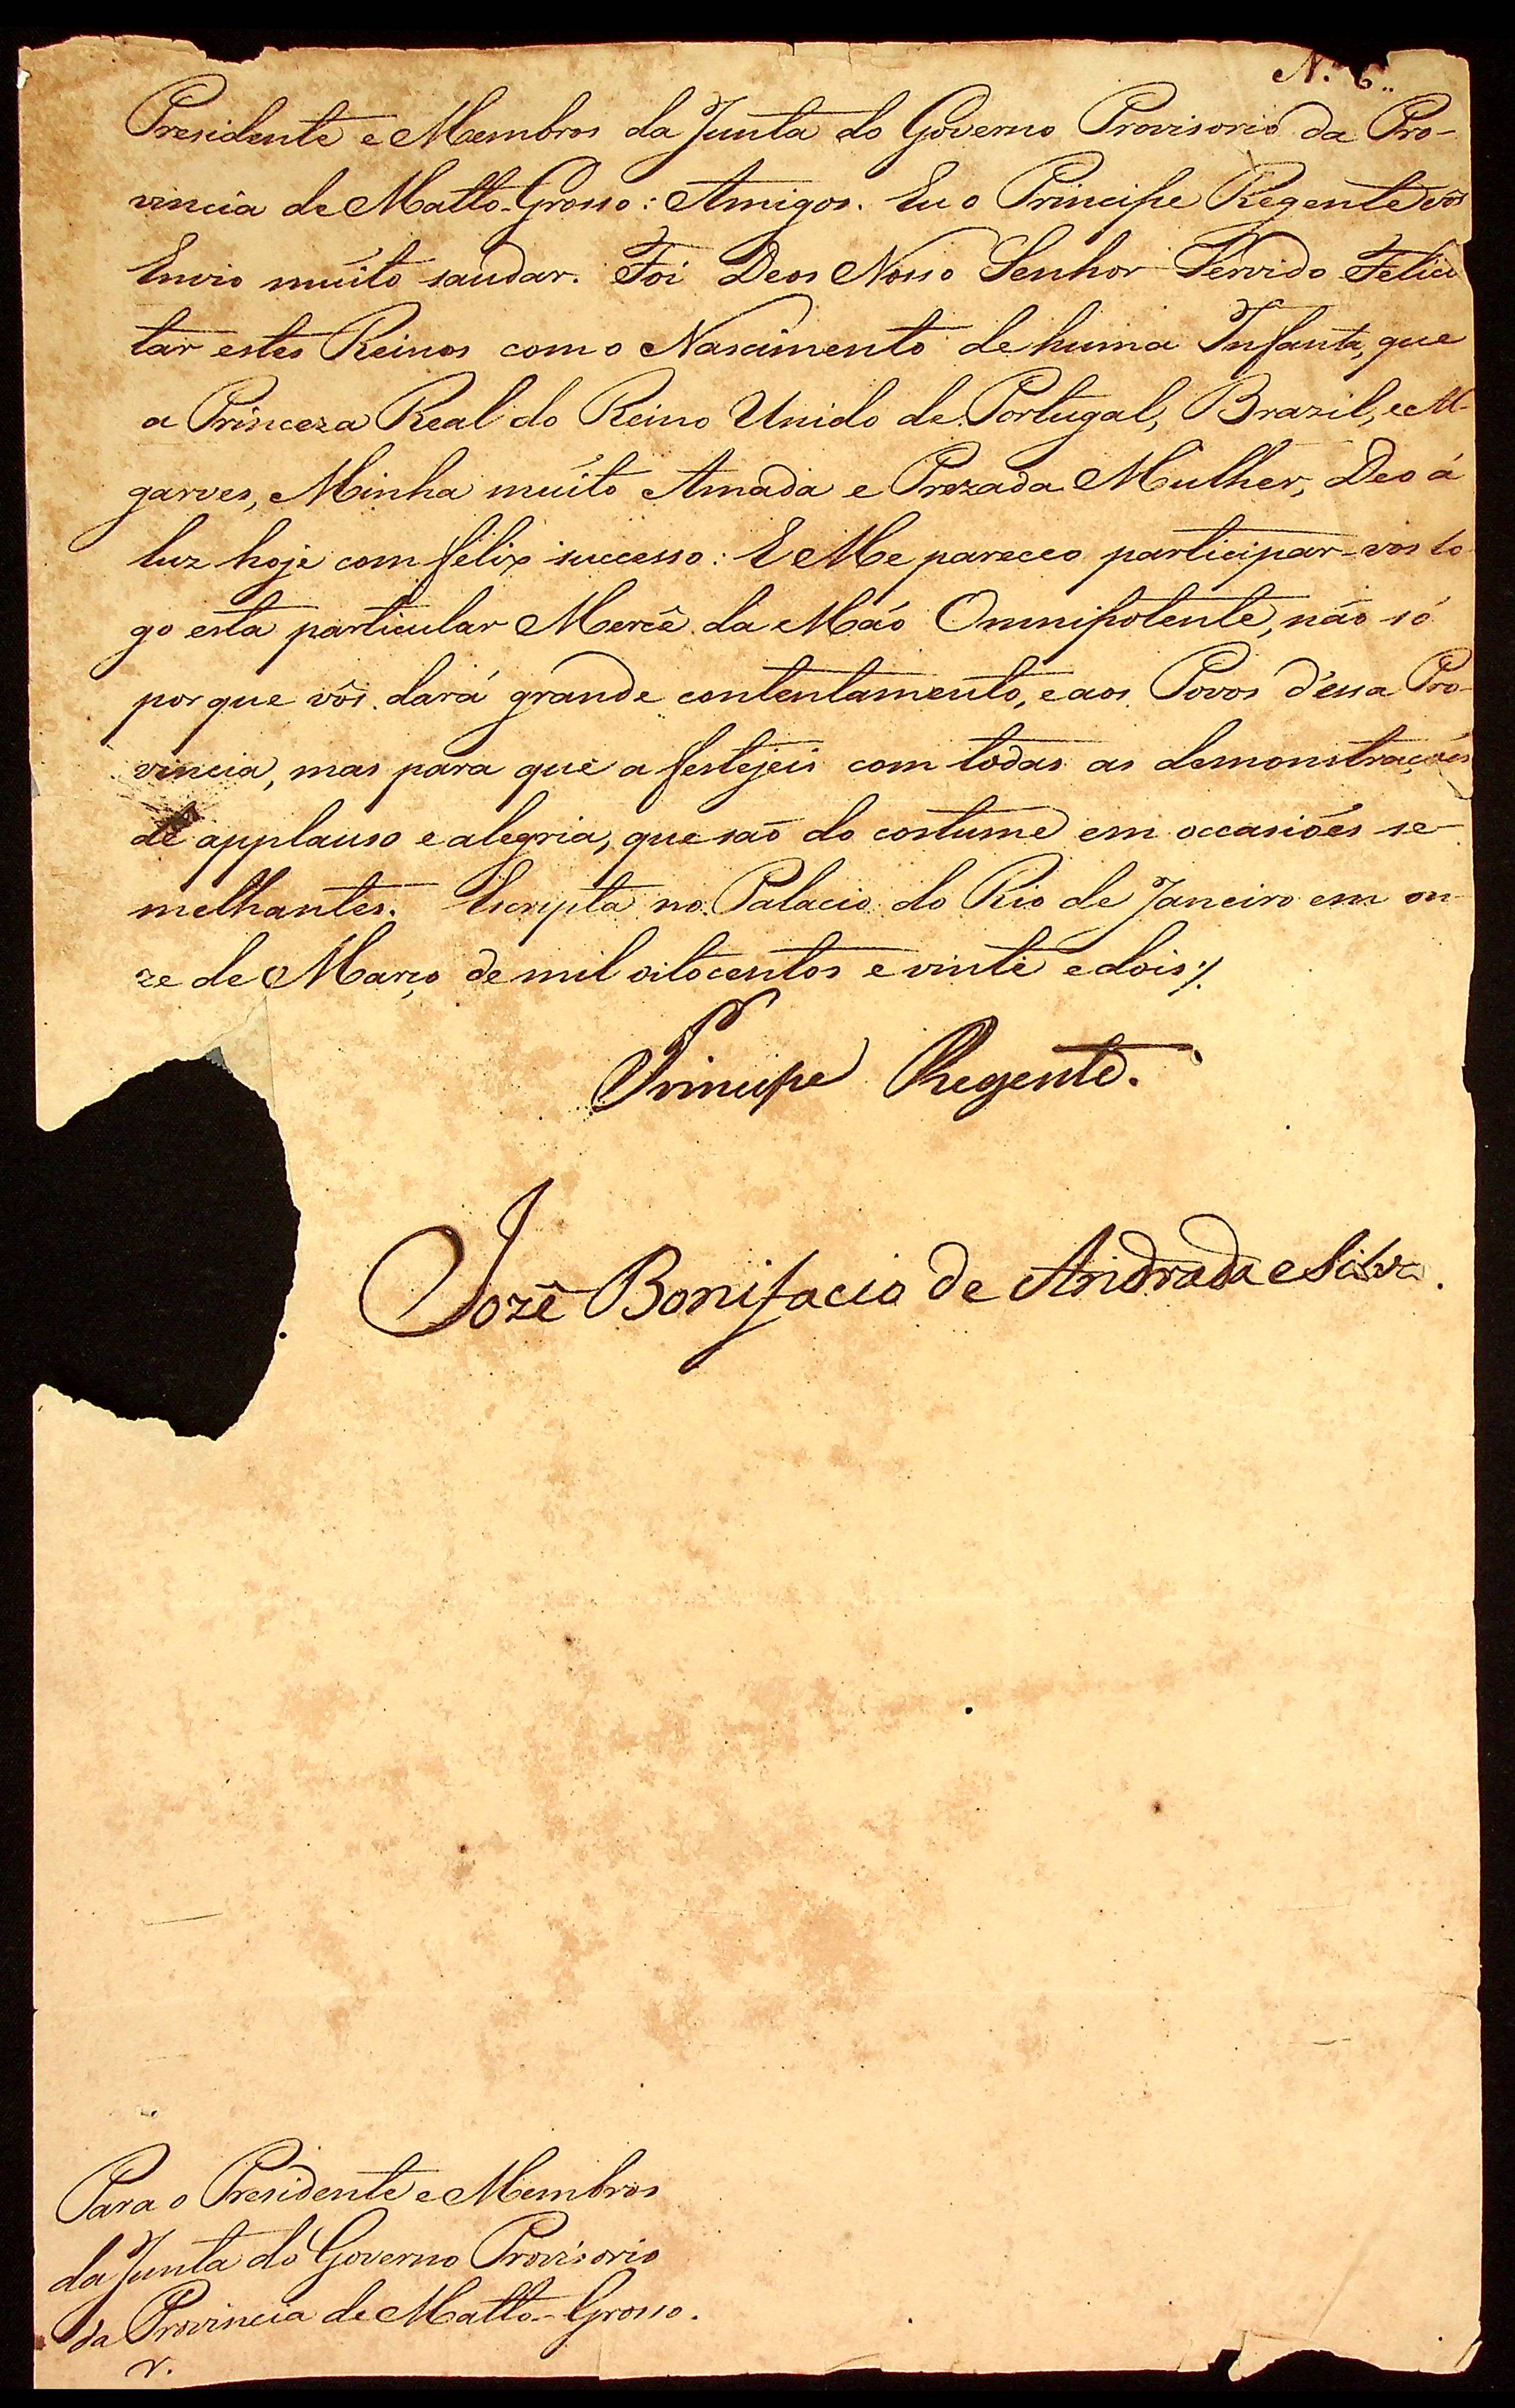 N. 6..
Presidente e Membros da Junta do Governo Provisorio da Pro-
vincia de Matto-Grosso: Amigos. Eu o Principe Regente vos
Envio muito saudar. Foi Deos Nosso Senhor Servido Felici
tar estes Reinos com o Nascimento de huma Infanta, que
a Princeza Real do Reino Unido de Portugal, Brazil, e Al-
garves, Minha muito Amada e Prezada Mulher, Deo á
luz hoje com felix successo: E Me pareceo participar-vos lo
go esta particular Mercê da Mão Omnipotente, não só
por que vôs dará grande contentamento, e aos Povos d'essa Pro-
vincia, mas para que a festejeis com todas as demonstrações
de applauso e alegria, que são do costume em occasiões se-
melhantes. Escripta no Palacio do Rio de Janeiro em on-
ze de Março de mil oitocentos e vinte e dois ./.
Principe Regente.
Jozé Bonifacio de Andrada e Silva.
Para o Presidente e Membros
da Junta do Governo Provisorio
da Provincia de Matto-Grosso.